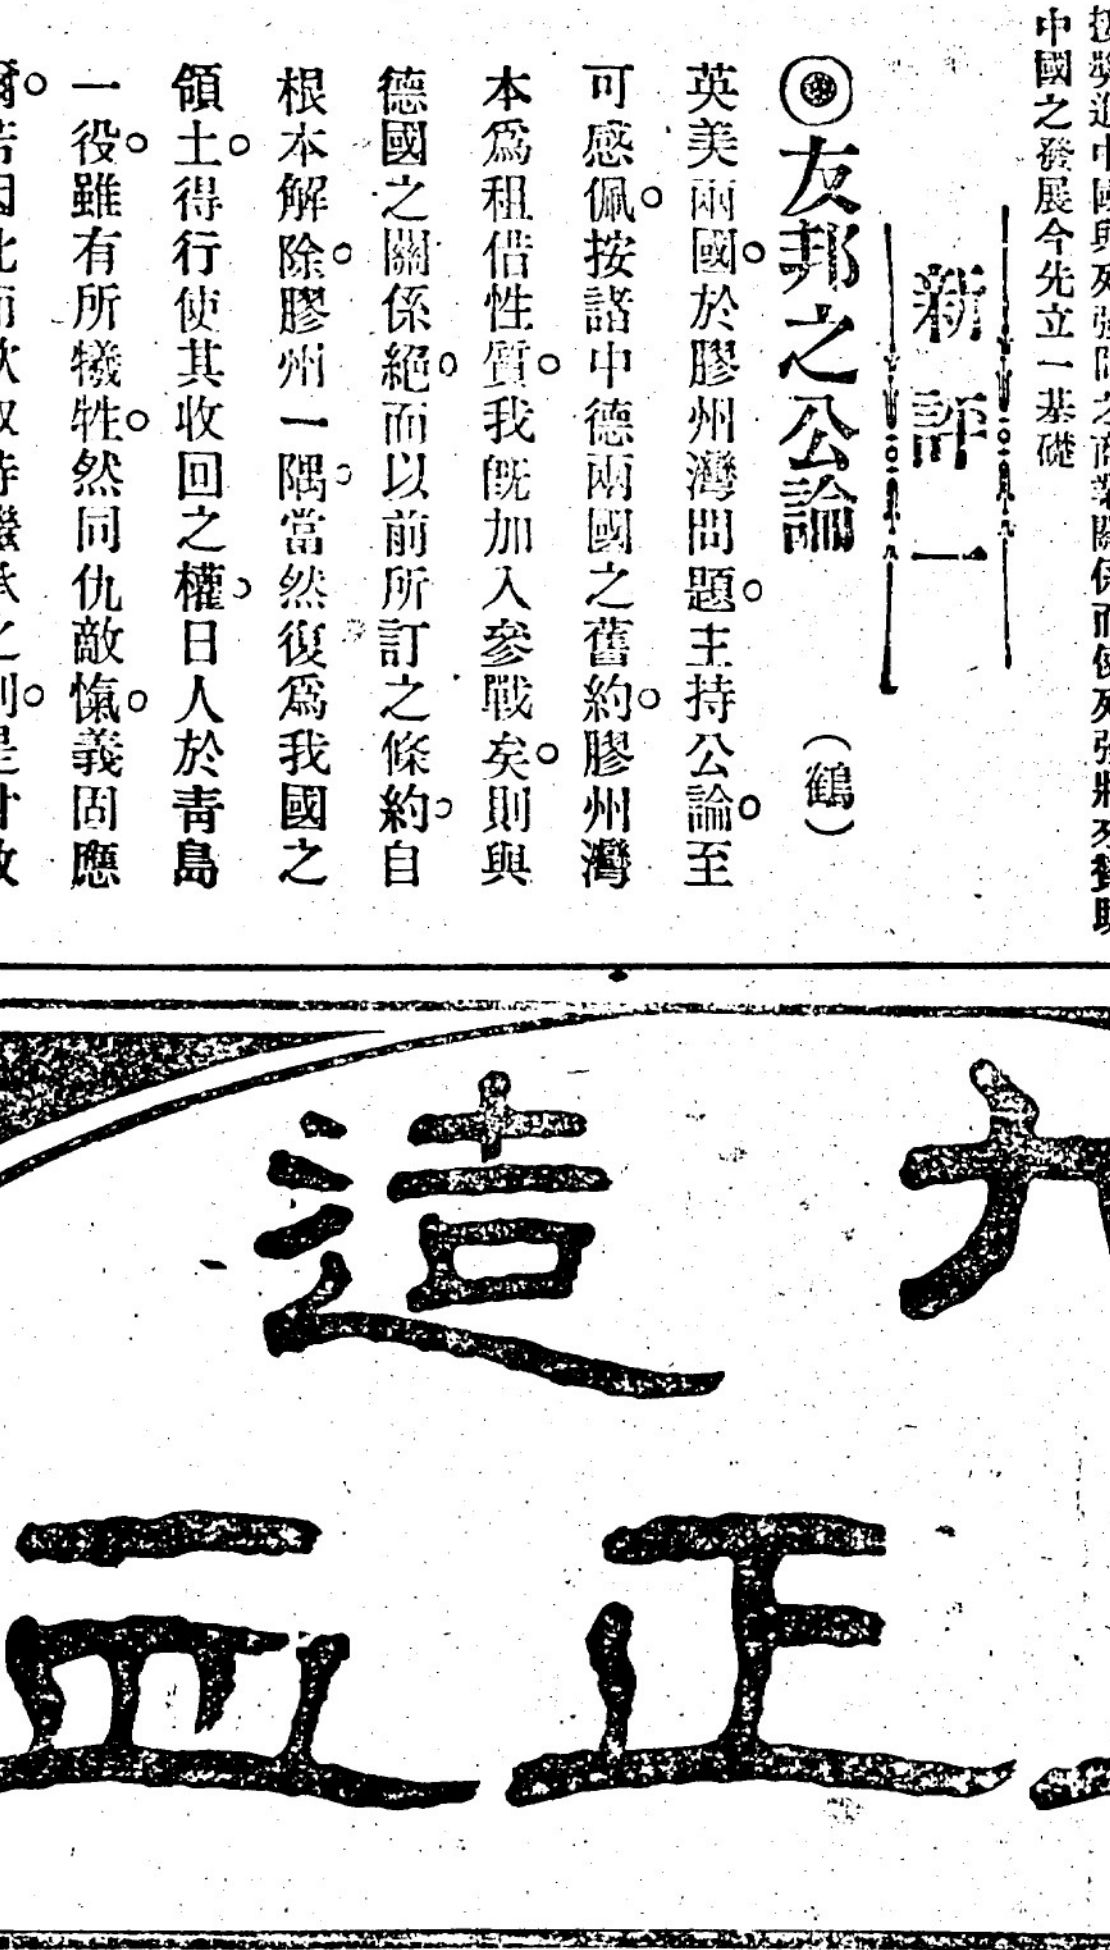 中國之發展今先立一基礎
新評一
◎友邦之公論
（鶴）
英美兩國。於膠州灣問題。主持公論。至
可感佩。按諮中德兩國之舊約。膠州灣
本爲租借性質。我既加入參戰矣。則與
德國之關係絕。而以前所訂之條約。自
根本解除。膠州一隅。當然復爲我國之
領土。得行使其收回之權。日人於靑島
一役。雖有所犧牲。然同仇敵愾。義固應
造
正